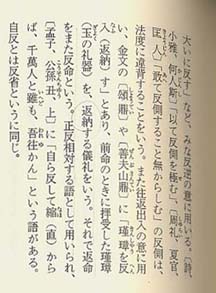 大いに反す」など、みな反逆の意に用いる。〔詩、
小雅、何人斯〕「以て反側を極む」、〔周礼、夏官、
匡人〕「敢て反側すること無からしむ」の反側は、
法度に違背することをいう。また往返出入の意に用
い、金文の〔頌鼎〕や〔善夫山鼎〕に「瑾璋を反
入(返納)す」とあり、前命のときに拝受した瑾璋
(玉の礼器)を、返納する儀礼をいう。それで返命
をまた反命という。正反相対する語として用いられ、
〔孟子、公孫丑、上〕に「自ら反して縮(直)から
ば、千萬人と雖も、吾往かん」という語がある。
自反とは反省というに同じ。